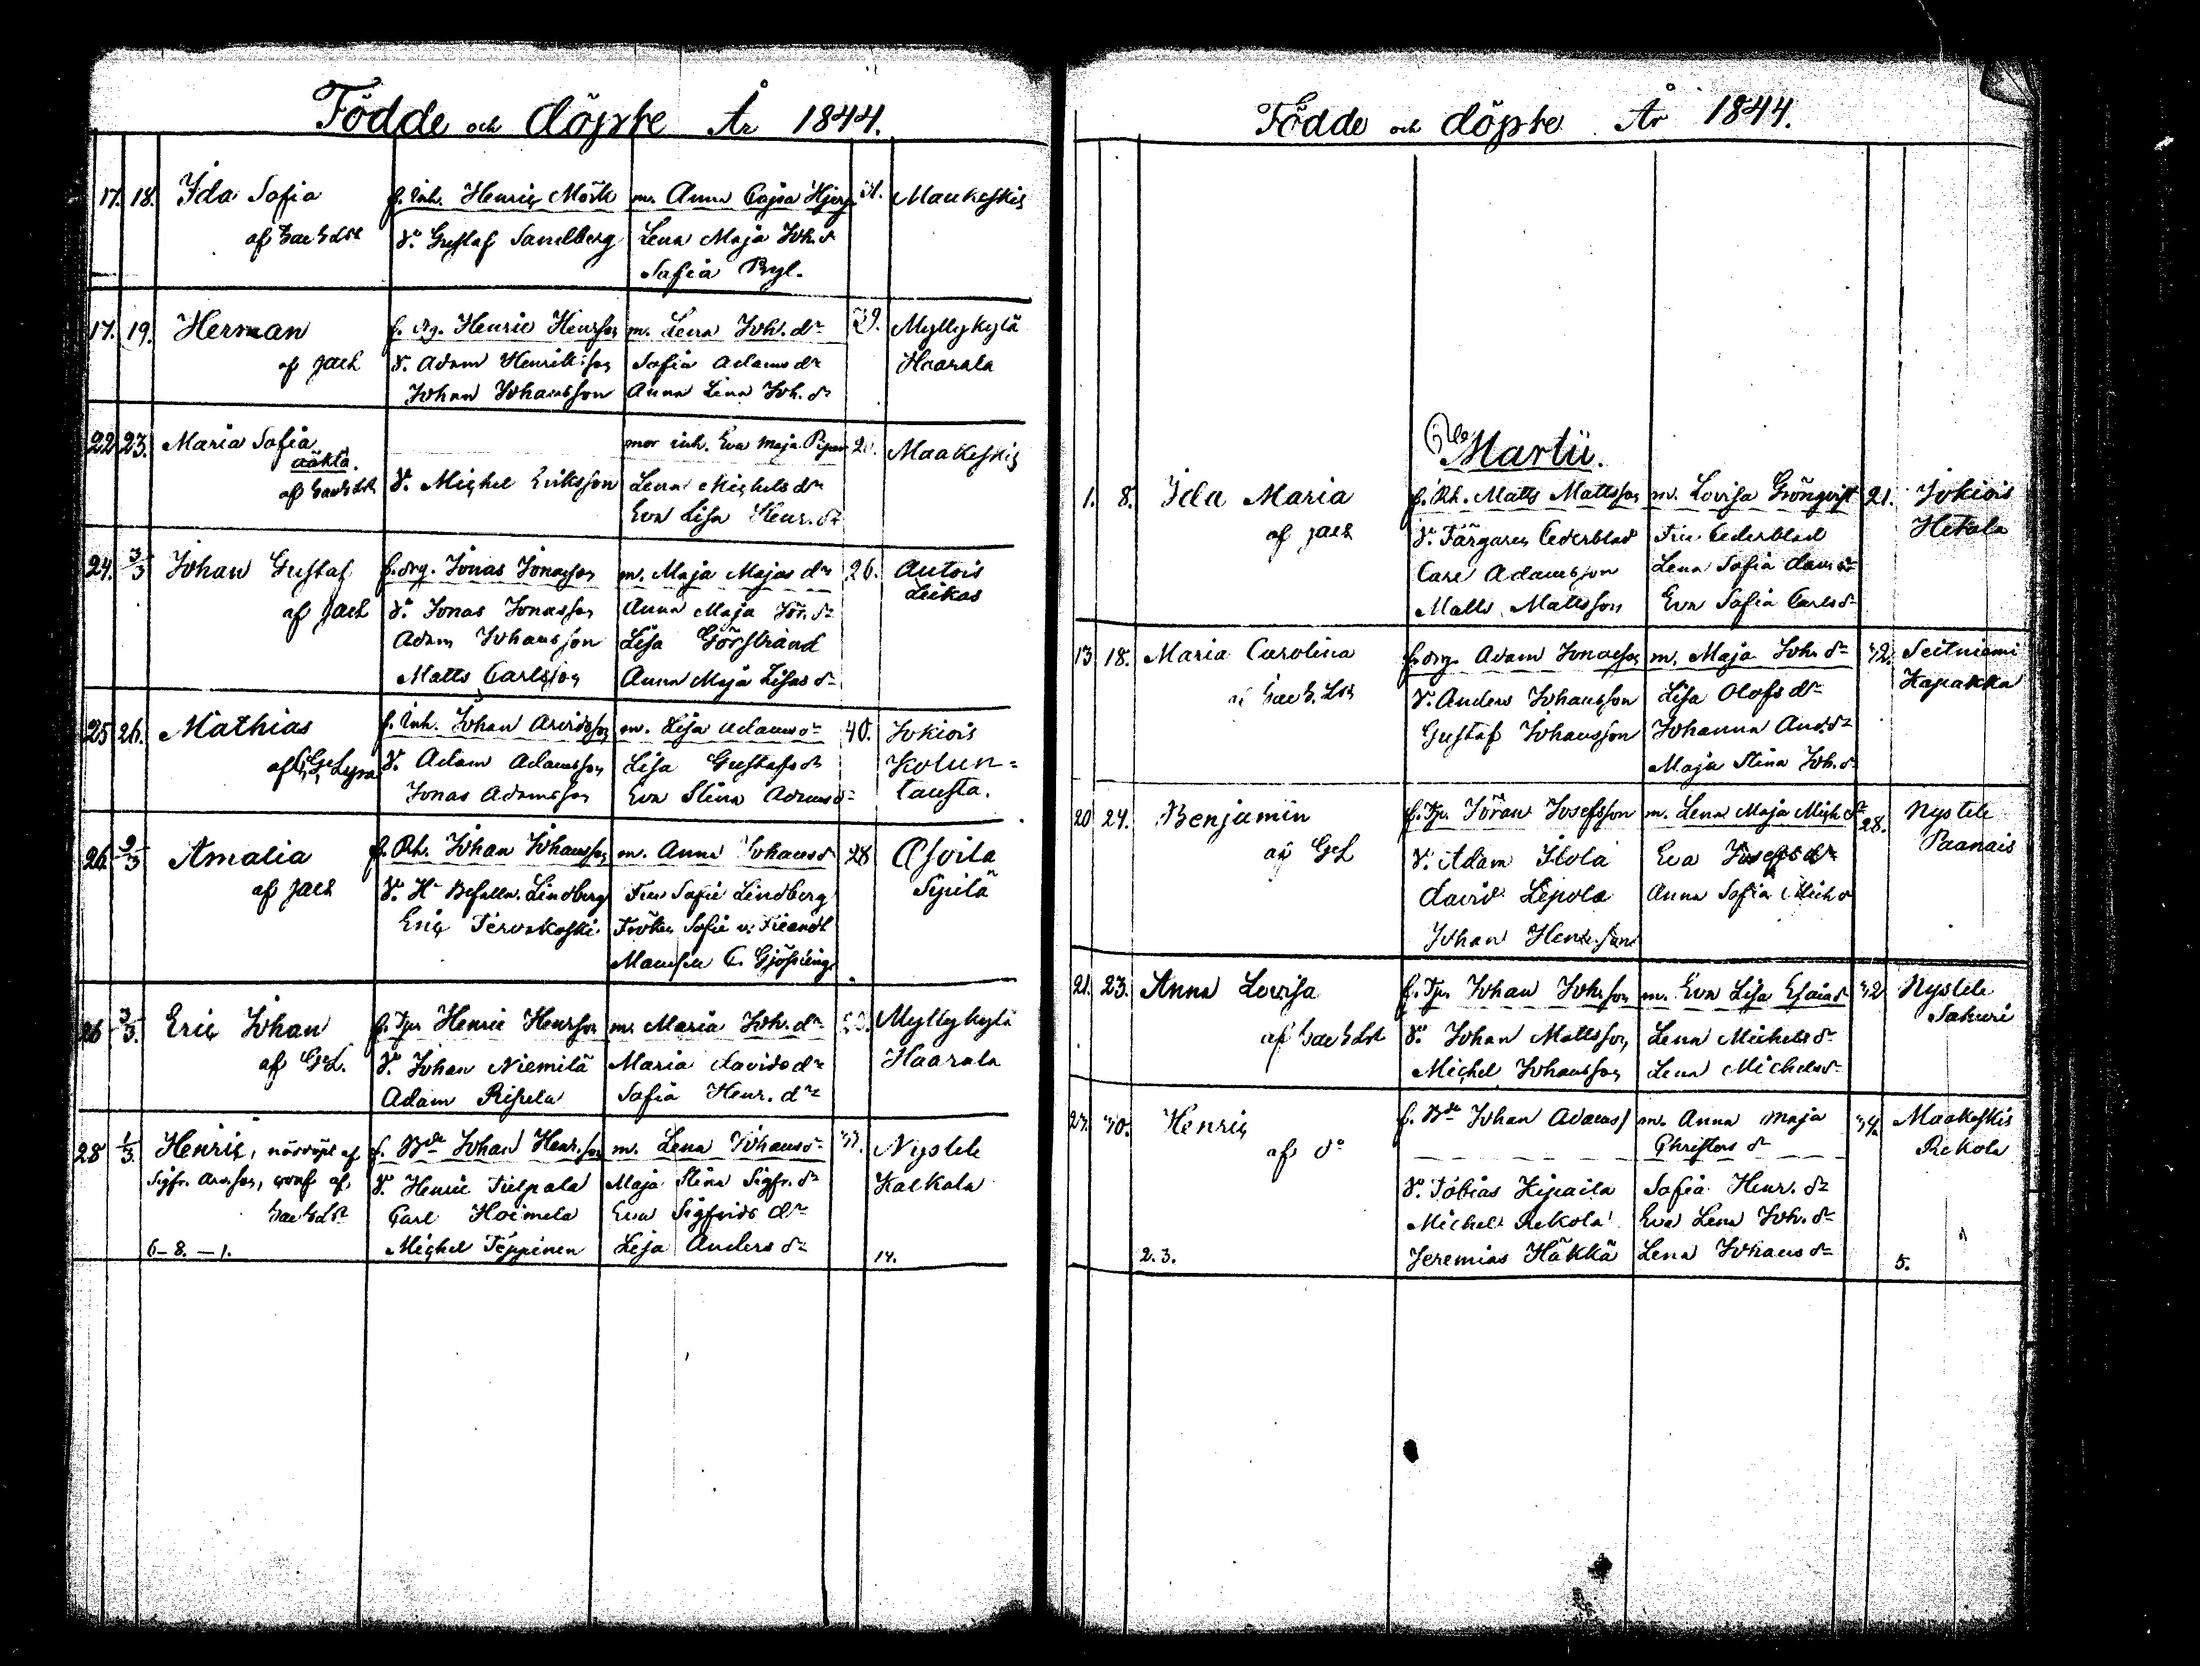 Födde och döpte År 1844.
17. 18. Ida Sofia f. Inh. Henric Mörk m. Anna Cajsa Maakeskis
af V. Gustaf Sandberg Lena Maja Joh. dr
Sofia Ryl.
17. 19. Herman f. Henric Henrsson m. Lena Joh. dr 39. Myllykylä
af V. Adam Henriksson Sofia Adams dr Haarala
Johan Johansson Anna Lena Joh. dr
22 23. Maria Sofia mor inh. Eva Maja Maakeskis
oäkta.
af V. Michel Eriksson Lena Michels dr
Eva Lisa Henr. dr
24. 3/3 Johan Gustaf f. drg. Jonas Jonasson m. Maja Majas dr 26. Autois
af V. Jonas Jonasson Anna Maja dr Leikas
Adam Johansson Lisa Görstrand
Matts Carlsson Anna Maja Lisas dr
25 26. Mathias f. Inh. Johan Arvidsson m. Lisa Adams dr 40. Jokiois
af V. Adam Adamsson Lisa Gustafs dr Kolun=
Jonas Adamsson Eva Stina Adams dr tausta.
26 2/3 Amalia f. Rh. Johan Johansson m. Anna Johans dr 28 Osoila
af V. Hr Befalln. Lindberg Fru Sofie Lindberg Sipilä
Eric Tervakoski Fröken Sofie v. Fieandt
Mamsell C.
26 3/3. Eric Johan f. Henric Henrsson m. Maria Joh. dr Myllykylä
af GeL. V. Johan Niemilä Maria Davids dr Haarala
Adam Sofia Henr. dr
28 1/3. Henric, nöddöpt af f. Bde Johan Henr.son m. Lena Johans dr Nystele
Sigfr. V. Henric Tielpala Maja Stina Sigfr. dr Kaekola
Carl Hoimela Eva Sigfrids dr
6-8.-1. Michel Teppinen Lisa Anders dr 14.
Födde och döpte År 1844.
Martii.
1. 8. Ida Maria f. Rh. Matts Mattsson m. Lovisa Grönqvist 21. Jokiois
af V. Färgaren Cederblad Fru Cederblad Hetala
Carl Adamsson Lena Sofia
Matts Mattsson Eva Sofia Carls dr
13 18. Maria Carolina f. drg. Adam Jonasson m. Maja Joh. dr 32. Seitniemi
V. Anders Johansson Lisa Olofs dr Hapakka
Gustaf Johansson Johanna And. dr
Maja Stina Joh. dr
20 24. Benjamin f. Tp. Göran Josefsson m. Lena Maja Mich. dr 28. Nystele
af GeL V. Adam Ilola Eva Josefs dr Paanais
David Lepola Anna Sofia Mich dr
Johan
21. 23. Anna Lovisa f. Tp. Johan Johsson m. Eva Lisa Esaias dr 32 Nystele
af V. Johan Mattsson Lena Michels dr Sakuri
Michel Johansson Lena Michels dr
27. 30. Henric f. Bde Johan Adamss m. Anna Maja 34. Maakeskis
af do Christers dr Rekola
V. Tobias Kipaila Sofia Henr. dr
Michel Rekola Eva Lena Joh. dr
2. 3. Jeremias Häkkä Lena Johans dr 5.